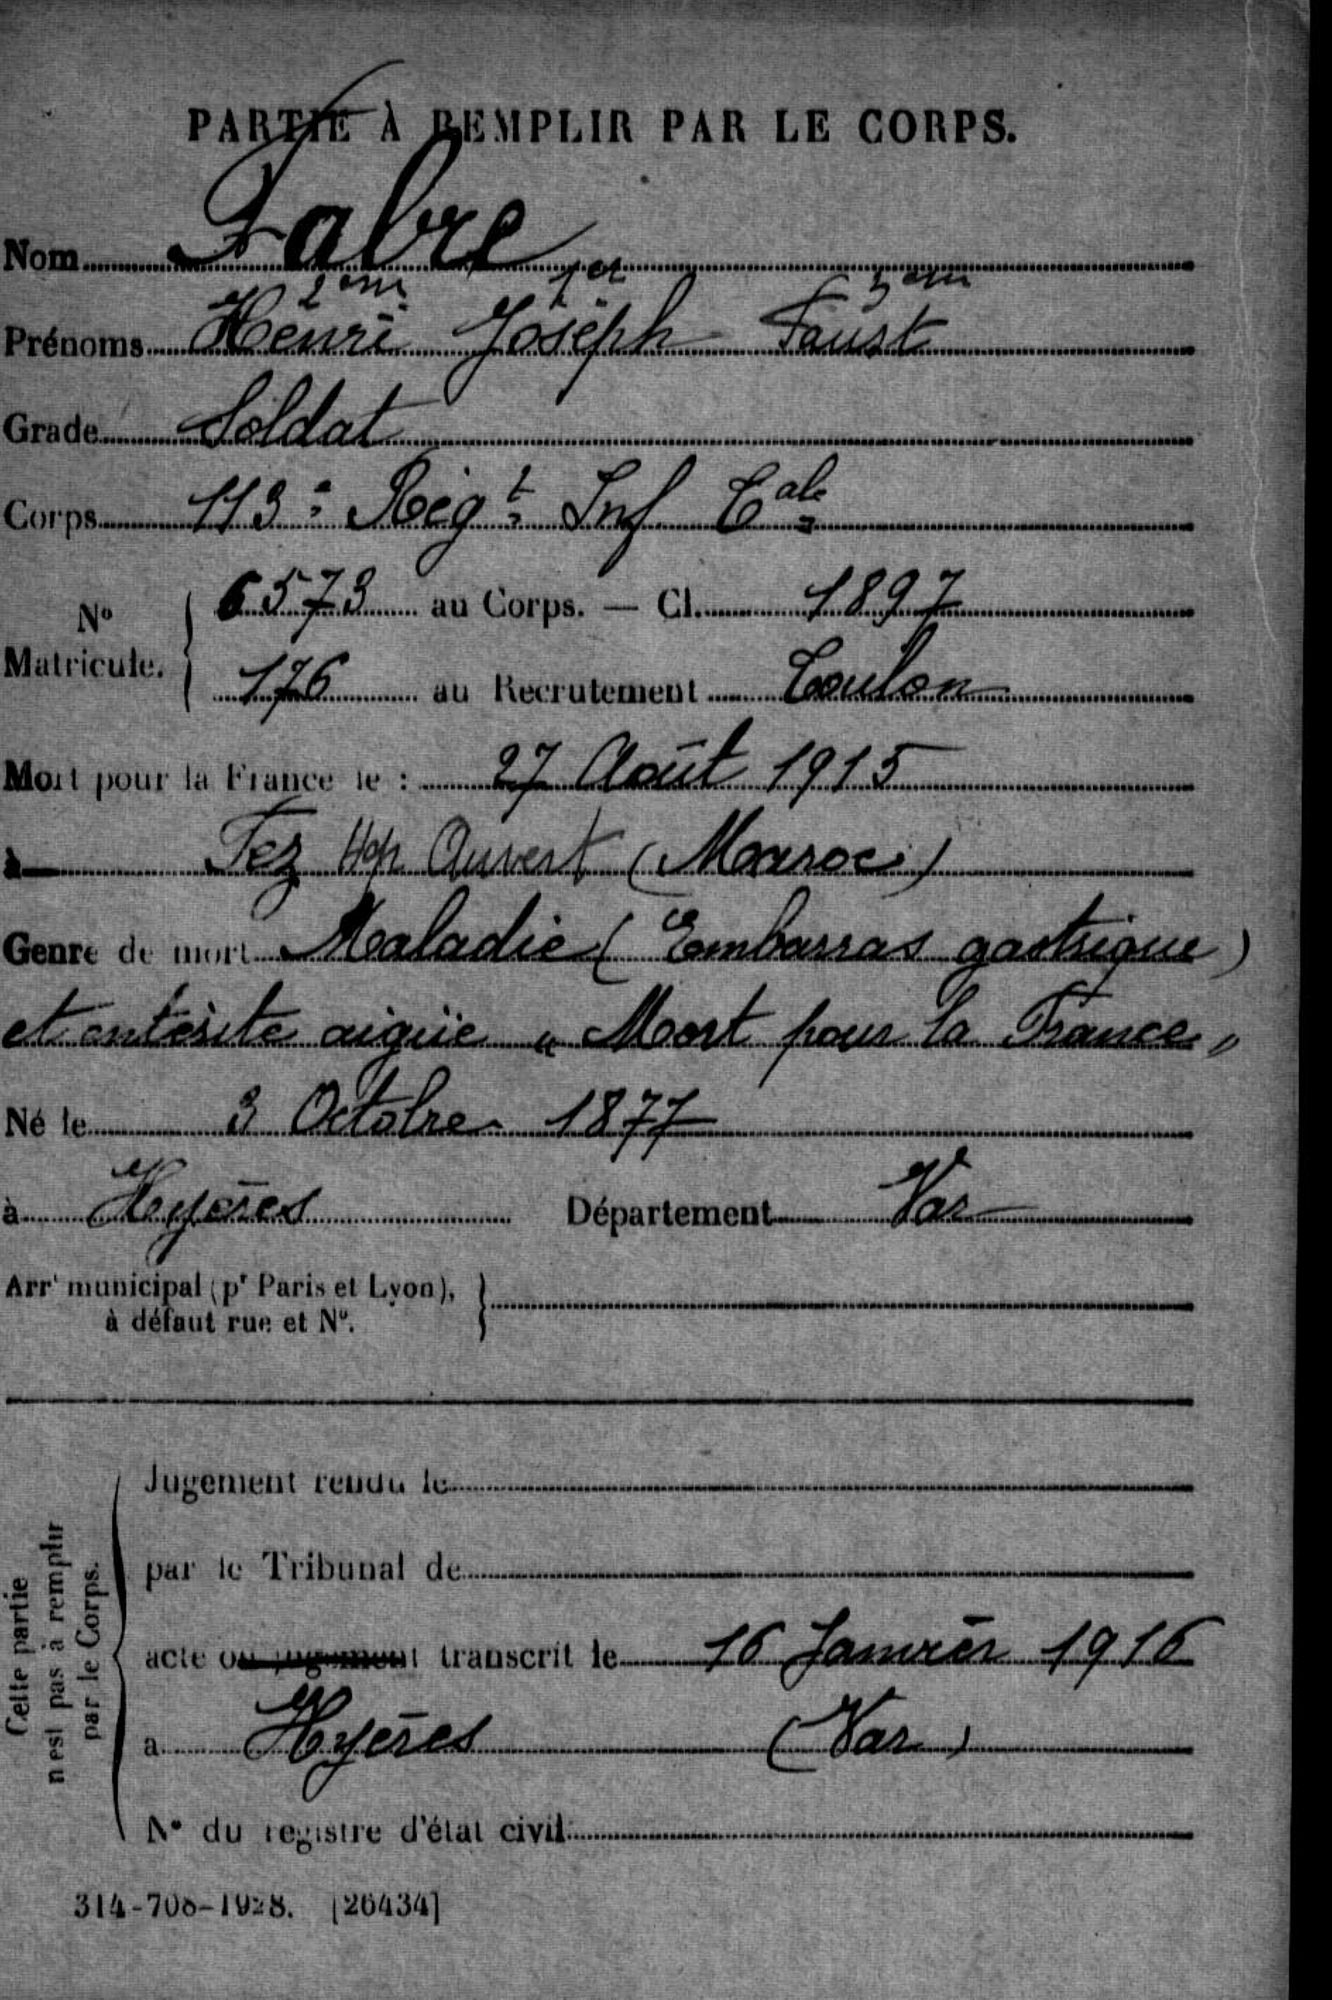 PARTIE À REMPLIR PAR LE CORPS.
Nom Fabre
2em 1er 3em
Prénoms Henri Joseph Faust
Grade Soldat
Corps 113e Régt Inf Cale
No Matricule. 6573 au Corps. — Cl. 1897
176 au Recrutement Toulon
Mort pour la France le : 27 Août 1915
à Fez Hop Auvert (Maroc)
Genre de mort Maladie ( Embarras gastrique )
et entérite aigüe "Mort pour la France"
Né le 3 Octobre 1877
à Hyères Département Var
Arrt municipal (pr Paris et Lyon),
à défaut rue et No.
Jugement rendu le
par le Tribunal de
acte ou jugement transcrit le 16 Janvier 1916
à Hyères (Var)
No du registre d'état civil
Cette partie
n'est pas à remplir
par le Corps.
314-708-1928. [26434]